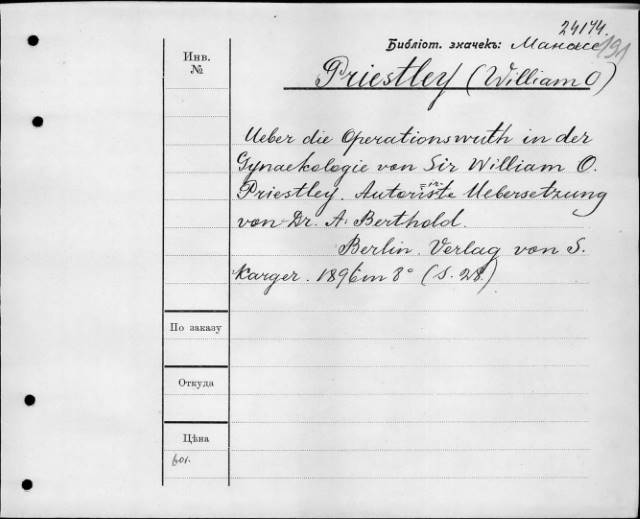 24174.
Библіот. значекъ: Манассе 191
Инв.
№
Priestley (William O)
Ueber die Operationswuth in der
Gynaekologie von Sir William O.
Priestley. Autorisirte Uebersetzung
von Dr. A. Berthold.
Berlin. Verlag von S.
Karger. 1896 in 8° (S. 28.)
По заказу
Откуда
Цѣна